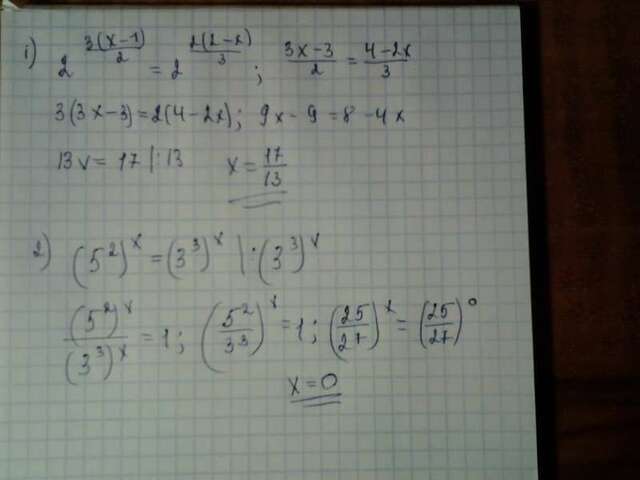 1) 2^(3(x-1)/2) = 2^(2(2-x)/3) ; (3x-3)/2 = (4-2x)/3
3(3x-3)=2(4-2x); 9x-9=8-4x
13x=17 |:13 x=17/13
2) (5^2)^x=(3^3)^x |:(3^3)^x
(5^2)^x/(3^3)^x=1; (5^2/3^3)^x=1; (25/27)^x=(25/27)^0
x=0